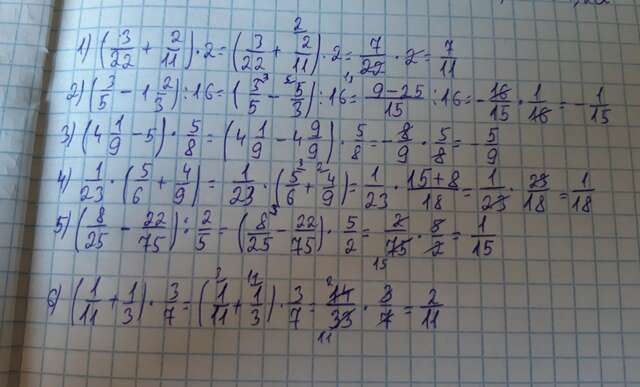 1) (3/22 + 2/11) · 2 = (3/22 + 2/11) · 2 = 7/22 · 2 = 7/11
2) (3/5 − 1 2/3) : 16 = (3/5 − 5/3) : 16 = 9−25/15 : 16 = − 16/15 · 1/16 = − 1/15
3) (4 1/9 − 5) · 5/8 = (4 1/9 − 4 9/9) · 5/8 = − 8/9 · 5/8 = − 5/9
4) 1/23 · (5/6 + 4/9) = 1/23 · (5/6 + 4/9) = 1/23 · 15+8/18 = 1/23 · 23/18 = 1/18
5) (8/25 − 22/75) : 2/5 = (8/25 − 22/75) · 5/2 = 2/75 · 5/2 = 1/15
6) (1/11 + 1/3) · 3/7 = (1/11 + 1/3) · 3/7 = 14/33 · 3/7 = 2/11